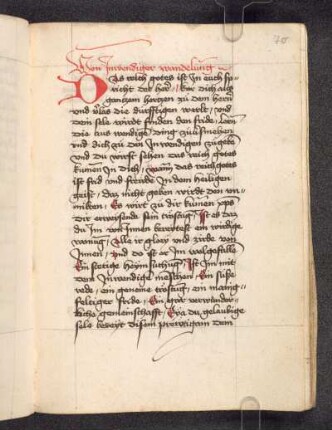 70
Von Inwendiger wandelung
Das reich gotes ist In euch spricht
der her / ker dich auß
gantzem hertzen zu dem herrn
und vlas die dürfftigen werlt / und
dein sele wirdt finden den fride / Lern
die aus wendigen ding zu
und dich zu den Inwendigen zu geben
und du wirst sehen das reich gotes
kumen In dich / wann das reich gotes
ist frid und freude In dem heiligen
geist / daz nicht geben wirdt den un
milten / Es wirt zu dir kumen xps
dir erweysende sein trostung / Ist es daz
du Im von Innen bereytest ein wirdige
wonung / Alle ir glory und zirde von
Innen / und do ist er Im walgefallen
Ein stetige heymsuchung / Ist Im mit
dem Inwendigen menschen / Ein süße
rede / ein geneme trostung / ein manig
feltiger fride / Ein gar verwunder
liche gemeinschafft / Eya du gelaubige
sele bereyt disem prewtigam dein